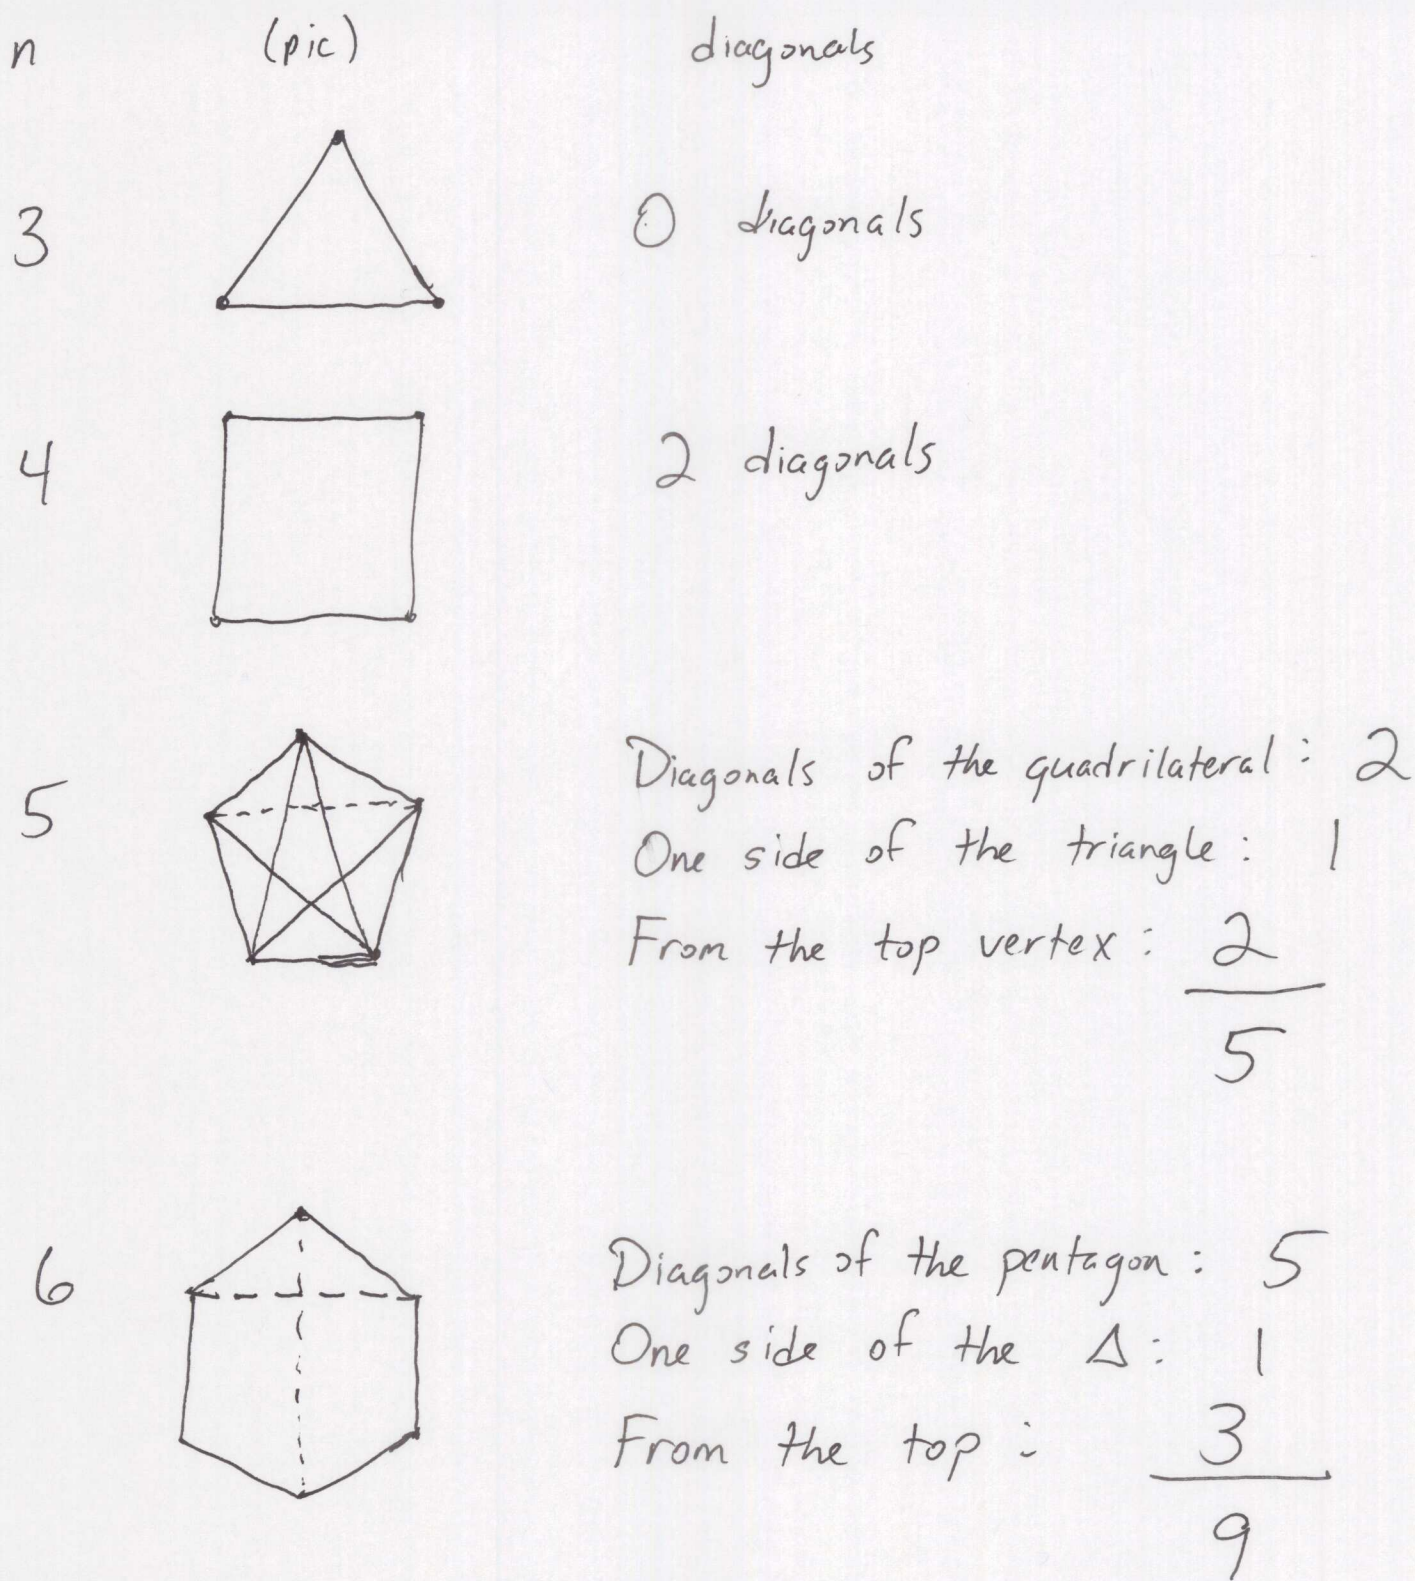 n (pic) diagonals
3 0 diagonals
4 2 diagonals
5 Diagonals of the quadrilateral: 2
One side of the triangle: 1
From the top vertex: 2
5
6 Diagonals of the pentagon: 5
One side of the Δ: 1
From the top: 3
9